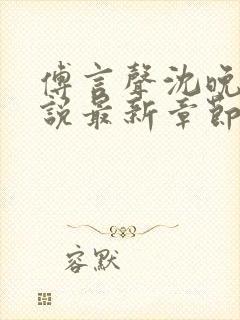 傅言聲沈晚
說最新章節
容默